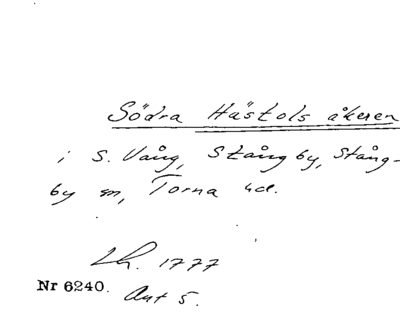 Södra Hästols åkeren
i S. Vång, Stångby, Stång-
by sn, Torna hd.
Lh. 1777
Nr 6240.
Akt 5.